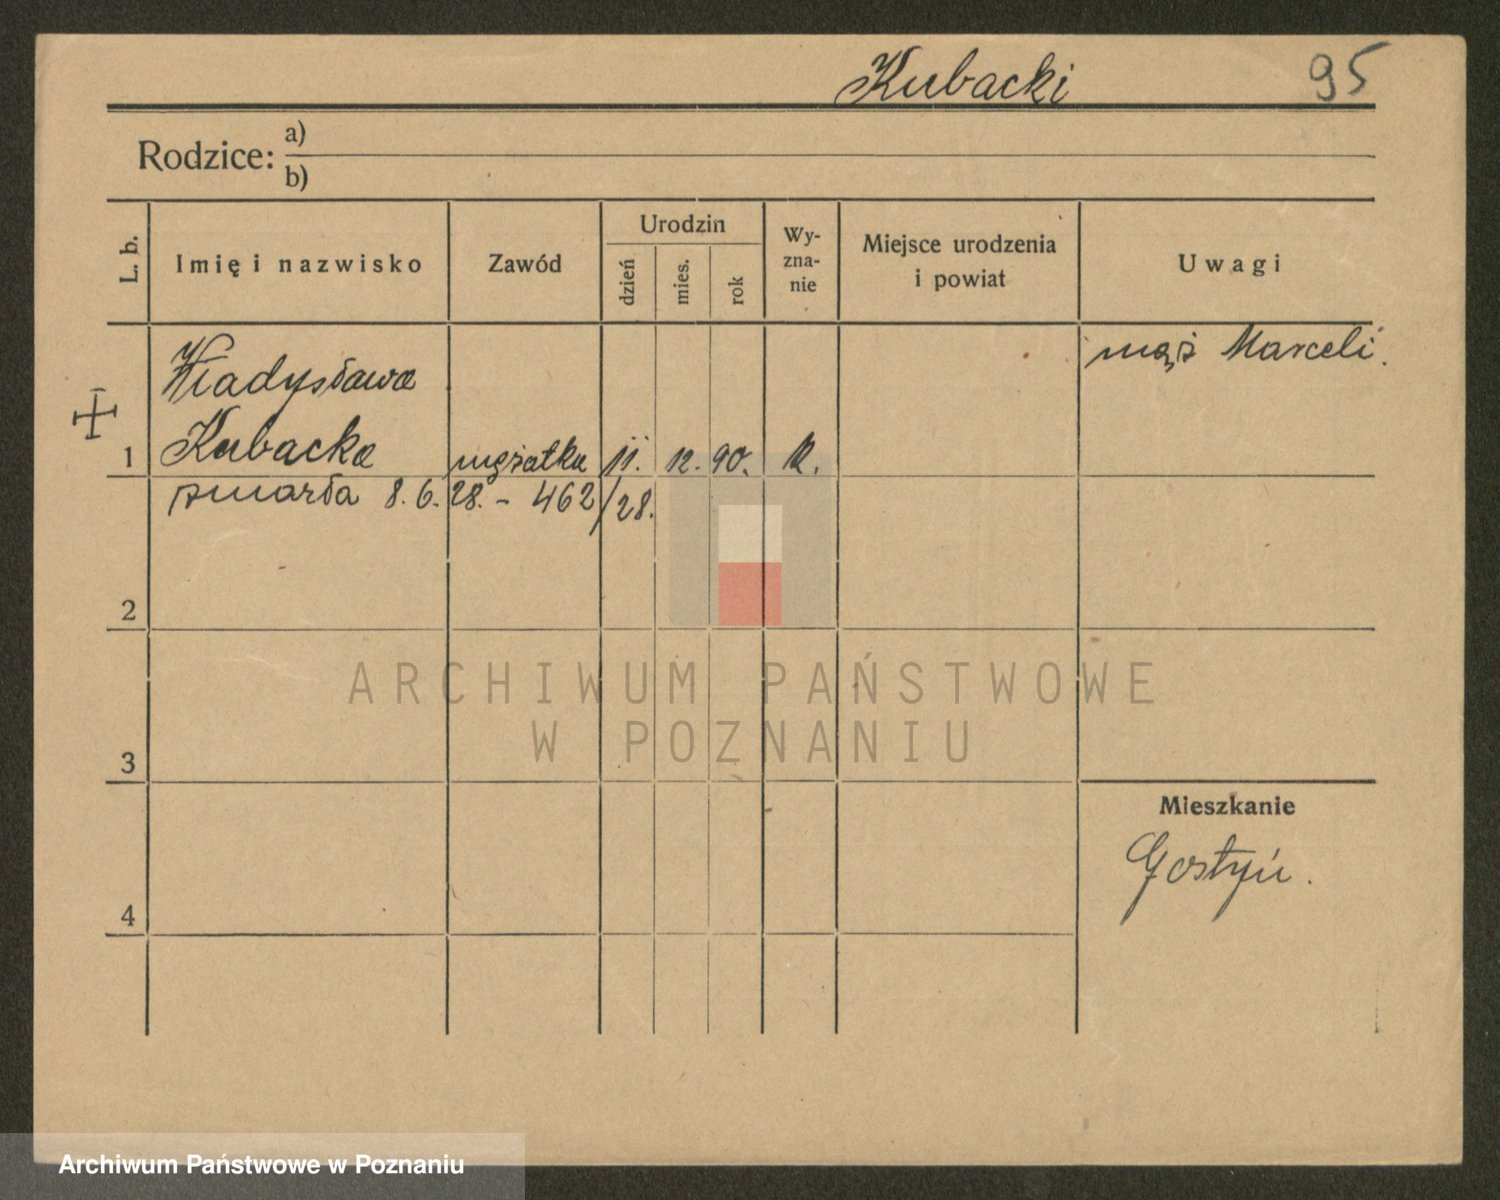 Kubacki 95
Rodzice: a)
b)
L. b.
Imię i nazwisko
Zawód
Urodzin
dzień
mies.
rok
Wy-
zna-
nie
Miejsce urodzenia
i powiat
Uwagi
mąż Marceli.
Władysława
1 Kubacka mężatka 11. 12. 90. k.
zmarła 8. 6. 28. - 462/28.
2
3
4
Mieszkanie
Gostyń.
ARCHIWUM PAŃSTWOWE
W POZNANIU
Archiwum Państwowe w Poznaniu